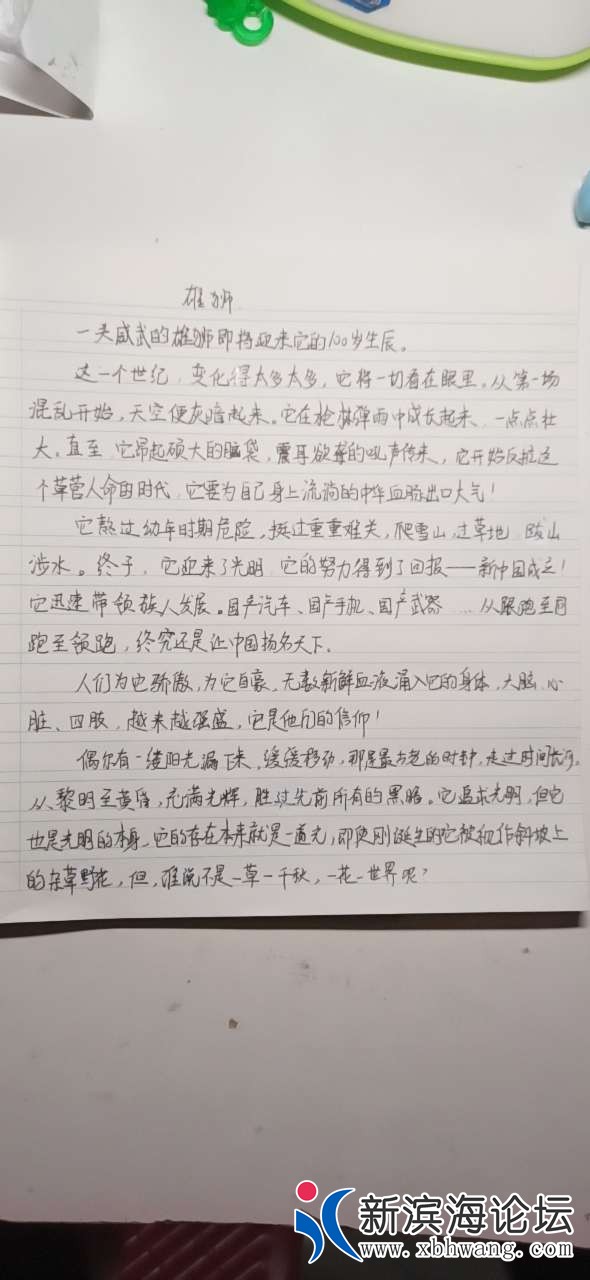 雄狮
一头威武的雄狮即将迎来它的100岁生辰。
这一个世纪，变化得太多太多，它将一切看在眼里。从第一场
混乱开始，天空便灰暗起来。它在枪林弹雨中成长起来，一点点壮
大。直至，它昂起硕大的脑袋，震耳欲聋的吼声传来，它开始反抗这
个草菅人命的时代，它要为自己身上流淌的中华血脉出口大气！
它熬过幼年时期危险，挺过重重难关，爬雪山，过草地，跋山
涉水。终于，它迎来了光明，它的努力得到了回报——新中国成立！
它迅速带领族人发展。国产汽车、国产手机、国产武器……从跟跑至同
跑至领跑，终究还是让中国扬名天下。
人们为它骄傲，为它自豪，无数新鲜血液涌入它的身体，大脑、心
脏、四肢，越来越强盛，它是他们的信仰！
偶尔有一缕阳光漏下来，缓缓移动，那是最古老的时钟，走过时间长河。
从黎明至黄昏，充满光辉，胜过先前所有的黑暗。它追求光明，但它
也是光明的本身，它的存在本来就是一道光，即使刚诞生的它被视作斜坡上
的杂草野花，但，谁说不是一草一千秋，一花一世界呢？
新滨海论坛
www.xbhwang.com